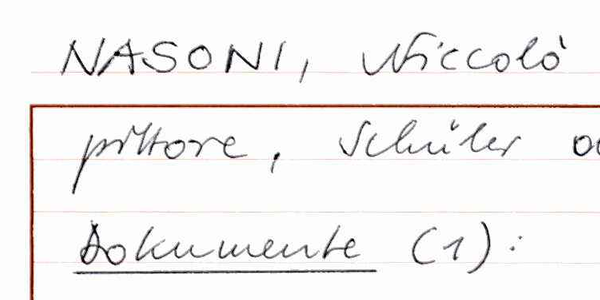 NASONI, Niccolò
pittore, Schüler
Dokumente (1):